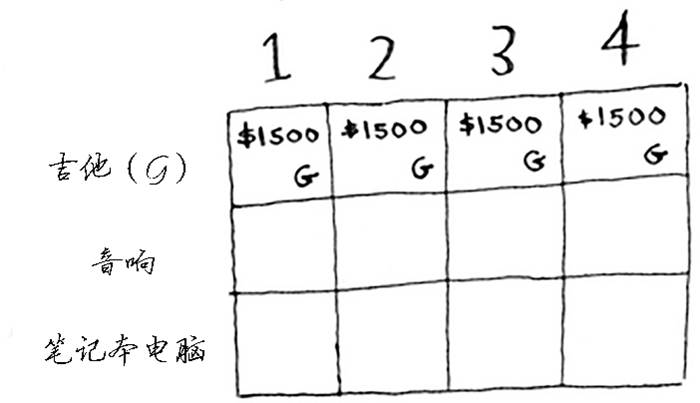 1 2 3 4
吉他（G） $1500 G $1500 G $1500 G $1500 G
音响
笔记本电脑